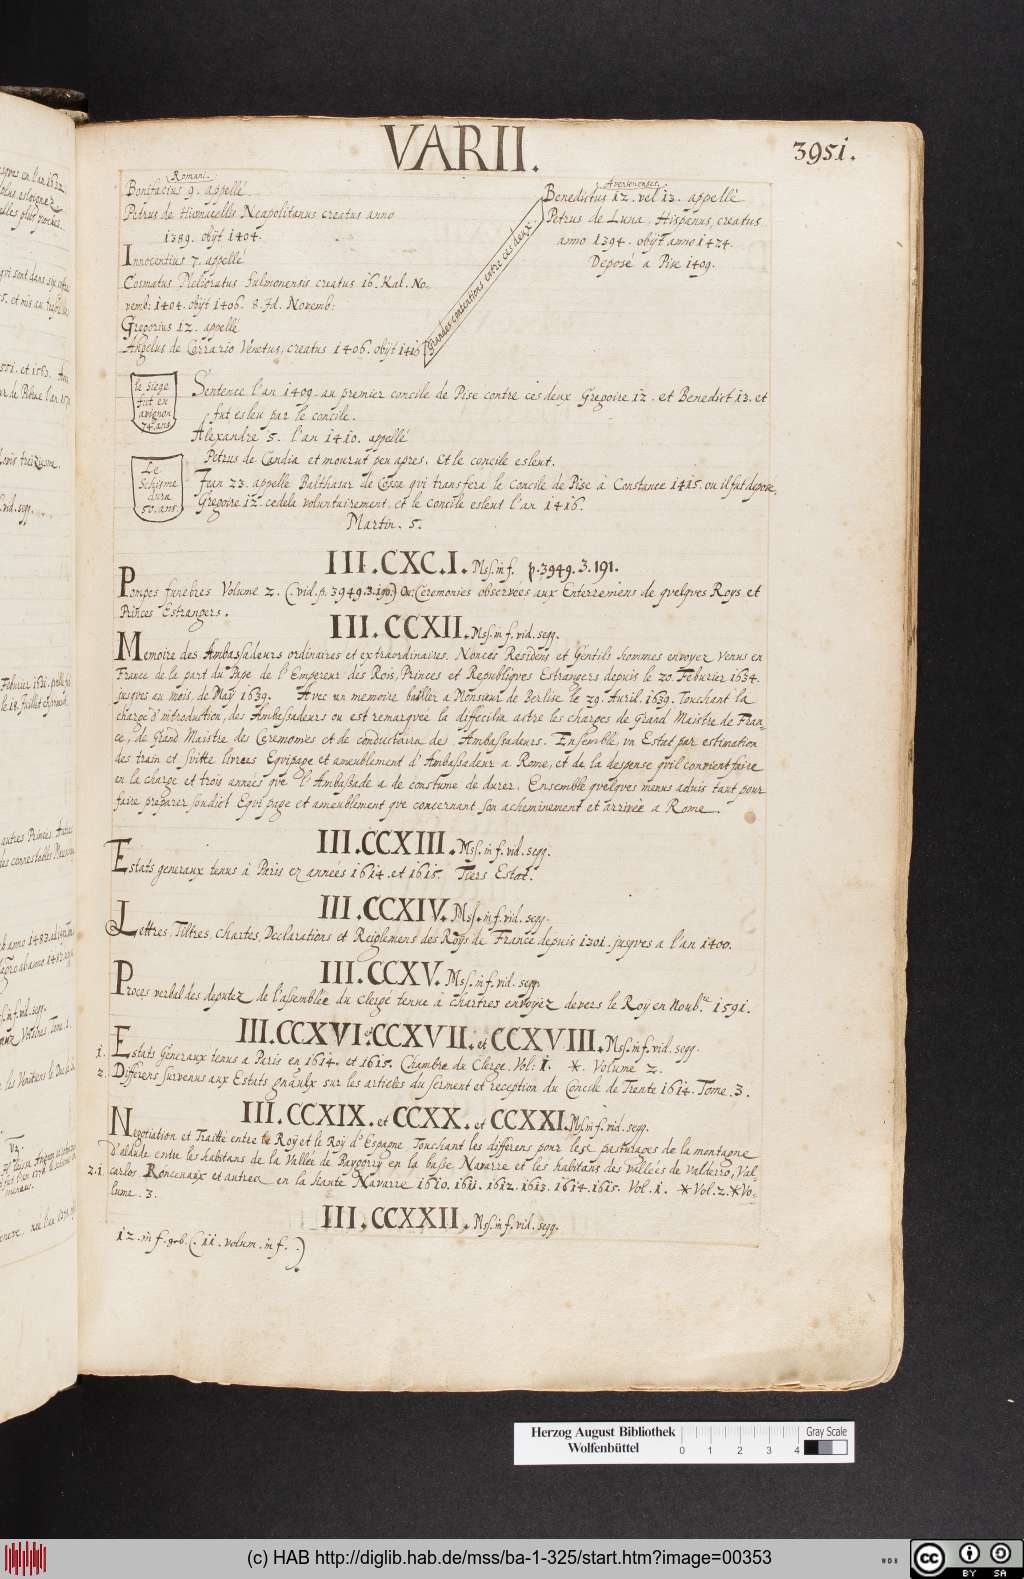 VARII.
3951.
Romani.
Bonifacius 9. appellé
Petrus de Neapolitanus creatus anno
1389. obijt 1404.
Innocentius 7. appellé
Cosmatus Melioratus Sulmonensis creatus 16. Kal. No-
vemb: 1404. obijt 1406. 8. Jd. Novemb:
Gregorius 12. appellé
Angelus de Corrario Venetus, creatus 1406. obijt 1415
Grandes contentions entre ces deux.
Avenionenses
Benedictus 12. vel 13. appellé
Petrus de Luna, Hispanus, creatus
anno 1394. obijt anno 1424.
Deposé a Pise 1409.
le siege
fut en
avignon
74. ans
Sentence l'an 1409. au premier concile de Pise contre ces deux Gregoire 12. et Benedict 13. et
fut esleu par le concile.
Alexandre 5. l'an 1410. appellé
Petrus de Candia et mourut peu apres. et le concile esleut.
Le
Schisme
dura
50. ans
Jean 23. appelle Balthasar de Cossa qui transfera le Concile de Pise à Constance 1415. ou il fut depose,
Gregoire 12. ceda le voluntairement. et le concile esleut l'an 1416.
Martin. 5.
III.CXC.I. Mss. in f. p. 3949. 3. 191.
Pompes funebres Volume 2. (vid. p. 3949.3.190.) Ou: Ceremonies observées aux Enterremens de quelques Roys et
Princes Estrangers.
III.CCXII. Mss. in f. vid. segg.
Memoire des Ambassadeurs ordinaires et extraordinaires. Nonces Residens et Gentils hommes envoyez venus en
France de la part du Pape de l'Empereur des Rois, Princes et Republiques Estrangers depuis le 20. Feburier 1634.
jusques au mois de May 1639. Avec un memoire baillér a Monsieur de Berlise le 29. Auril. 1639. Touchant la
charge d'introduction, des Ambassadeurs ou est remarqueé la les charges de Grand Maistre de Fran-
ce, de Grand Maistre des Ceremonies et de conducteurs des Ambassadeurs. Ensemble, un Estat par estimation
des train et suitte livrees Equipage et ameublement d'Ambassadeur a Rome, et de la despense quil convient faire
en la charge et trois années que l'Ambassade a de constume de durer. Ensemble quelques menus aduis tant pour
faire preparer soudict Equipage et ameublement que concernant son acheminement et arrivée a Rome.
III.CCXIII. Mss. in f. vid. segg.
Estats generaux tenus à Paris ez années 1614. et 1615. Tiers Estat.
III.CCXIV. Mss. in f. vid. segg.
Lettres, Tiltres, Chartes, Declarations et Reiglemens des Roys de France depuis 1301. jusques a l'an 1400.
III.CCXV. Mss. in f. vid. segg.
Proces verbal des deputez de l'assemblée du Clergé tenue à Chartres envoyez devers le Roy en Noub.re 1591.
III.CCXVI. et CCXVII. et CCXVIII. Mss. in f. vid. segg.
1. Estats Generaux tenus a Paris en 1614. et 1615. Chambre du Clerge. Vol: I. * Volume 2.
2. Differens survenus aux Estats gnäulx sur les articles du serment et reception du Concile de Trente 1614. Tome. 3.
III.CCXIX. et CCXX. et CCXXI. Mss. in f. vid. segg.
Negotiation et Traitté entre le Roy et le Roy d'Espagne Touchant les differens pour les pasturages de la montagne
D'aldude entre les habitans de la Vallée de Baygorry en la basse Navarre et les habitans des vallées de Valderro, Val
2.1. carlos Roncenaix et autres en la haute Navarre 1610. 1611. 1612. 1613. 1614. 1615. Vol. 1. * Vol. 2. * Vo-
lume. 3.
III.CCXXII. Mss. in f. vid. segg.
12. in f. geb. (11. volum. in f.)
Herzog August Bibliothek
Wolfenbüttel
0 1 2 3 4
Gray Scale
(c) HAB http://diglib.hab.de/mss/ba-1-325/start.htm?image=00353
WDB
cc BY SA